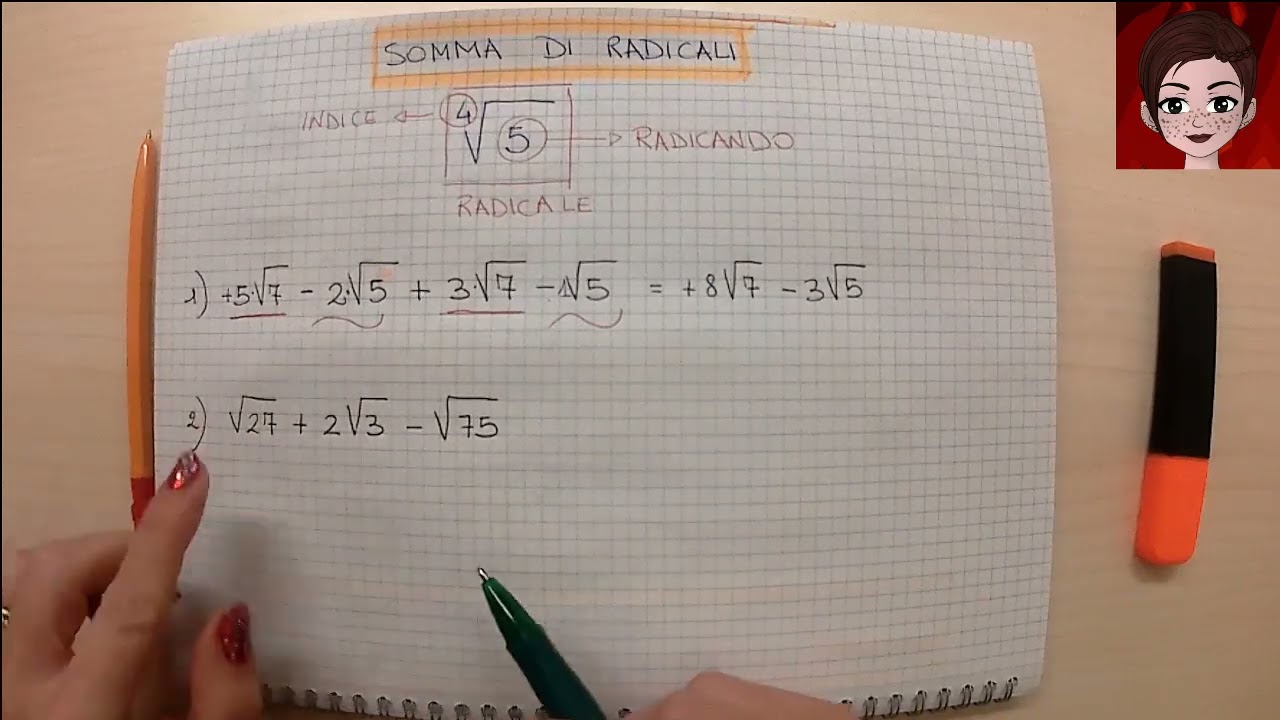 SOMMA DI RADICALI
INDICE ← ⁴√5 → RADICANDO
RADICALE
1) +5·√7 - 2·√5 + 3·√7 - 1√5 = +8√7 - 3√5
2) √27 + 2√3 - √75